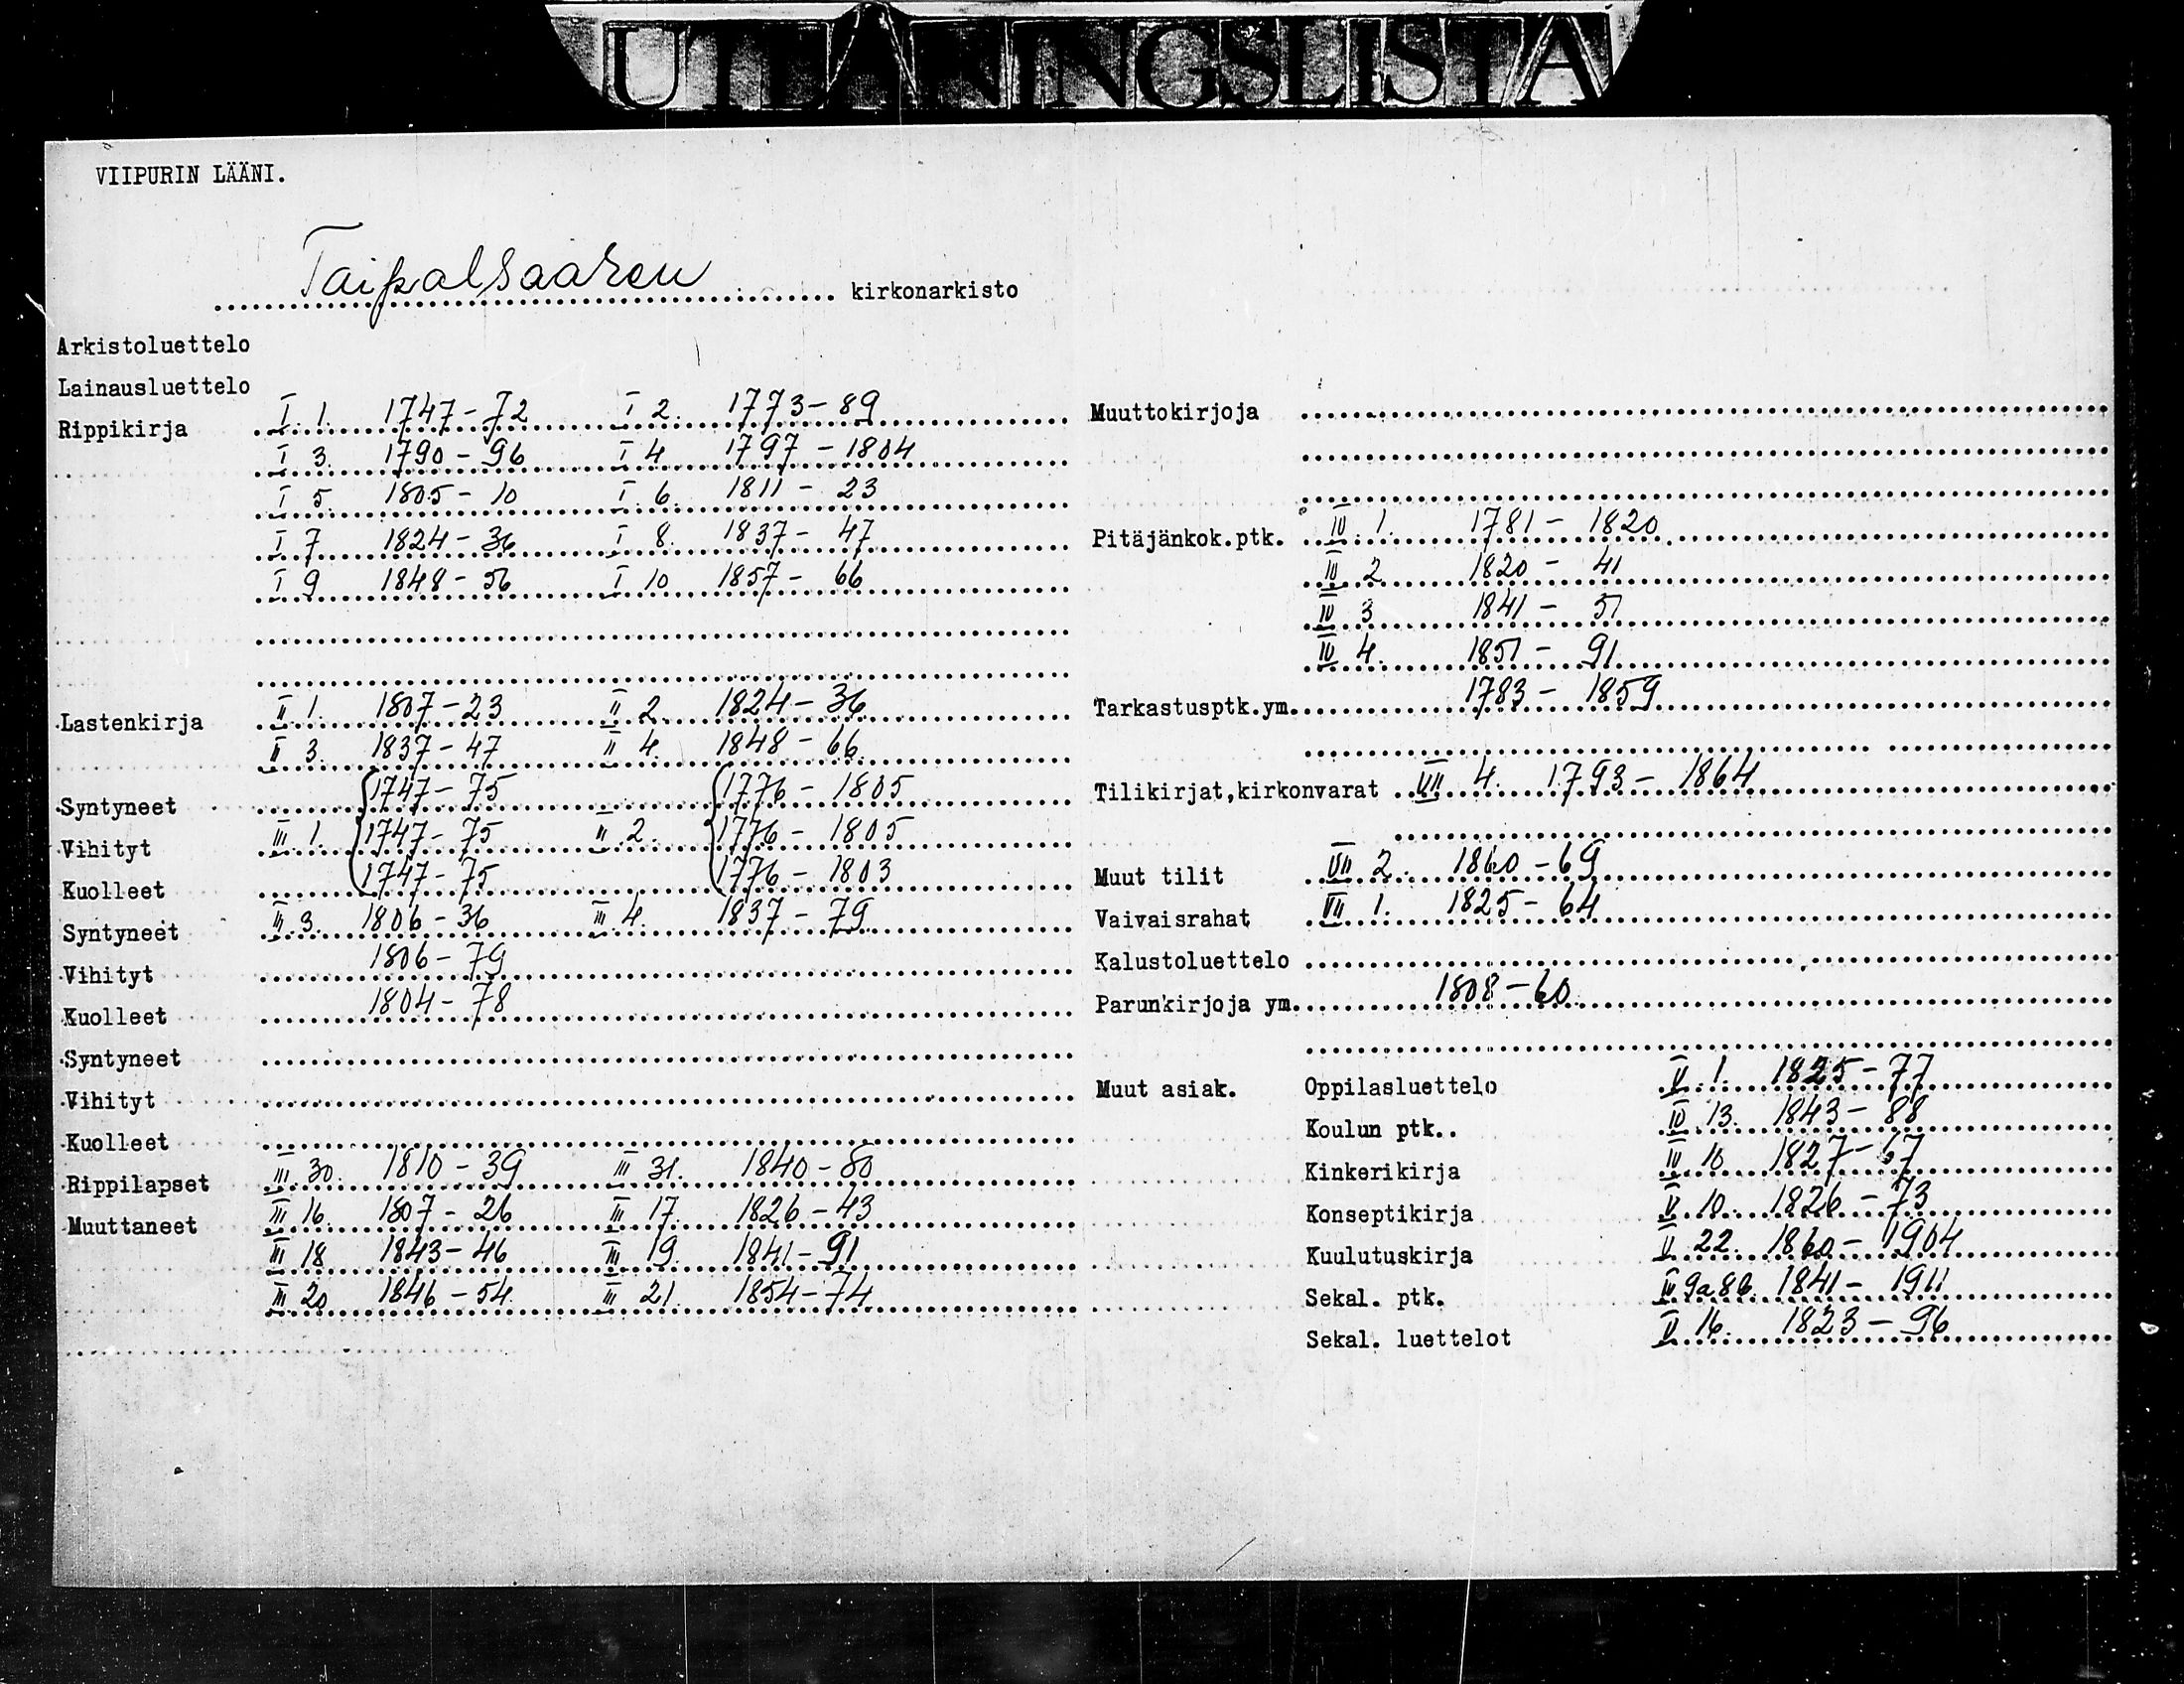 UTLÅNINGSLISTA
VIIPURIN LÄÄNI.
Taipalsaaren kirkonarkisto
Arkistoluettelo
Lainausluettelo
Rippikirja I. 1. 1747-72 I 2. 1773-89
I 3. 1790-96 I 4 1797-1804
I 5. 1805-10 I. 6. 1811-23
I 7 1824-36 I 8. 1837-47
I 9 1848-56 I 10 1857-66
Lastenkirja II. 1. 1807-23 II 2. 1824-36
II 3. 1837-47 II 4. 1848-66
Syntyneet 1747-75 1776-1805
Vihityt III. 1. 1747-75 II. 2. 1776-1805
Kuolleet 1747-75 1776-1803
Syntyneet II. 3. 1806-36 III. 4. 1837-79
Vihityt 1806-79
Kuolleet 1804-78
Syntyneet
Vihityt
Kuolleet
Rippilapset III. 30. 1810-39 III 31. 1840-80
Muuttaneet III 16. 1807-26 III 17. 1826-43
III 18 1843-46 III 19. 1841-91
III. 20 1846-54 III 21. 1854-74
Muuttokirjoja
Pitäjänkok.ptk. IV. 1. 1781-1820
IV 2. 1820-41
IV 3 1841-51
IV 4. 1851-91
Tarkastusptk.ym. 1783-1859
Tilikirjat,kirkonvarat VII 4. 1793-1864
Muut tilit VII 2. 1860-69
Vaivaisrahat VII 1. 1825-64
Kalustoluettelo
Parunkirjoja ym. 1808-60
Muut asiak. Oppilasluettelo V. 1. 1825-77
Koulun ptk.. IV 13. 1843-88
Kinkerikirja IV 10 1827-67
Konseptikirja V. 10. 1826-73
Kuulutuskirja II 22. 1860-1904
Sekal. ptk. 1841-1911
Sekal. luettelot V. 16. 1823-96